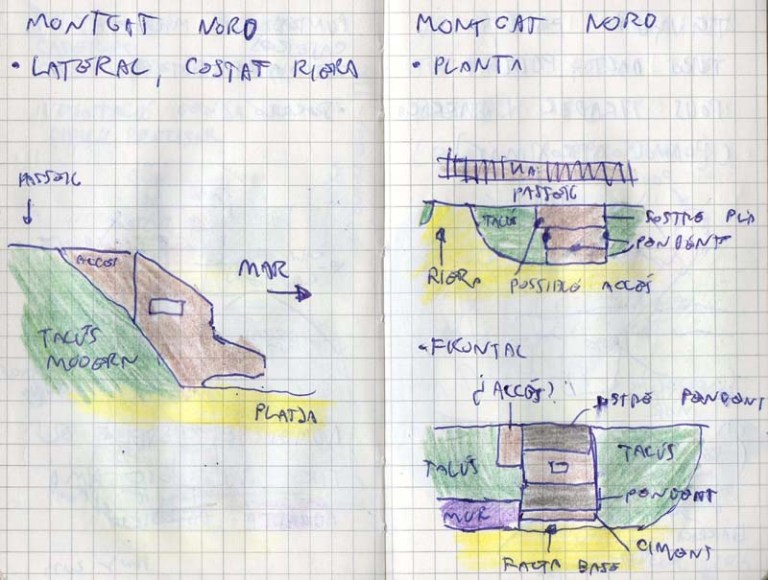 MONTGAT NORD
• LATERAL, COSTAT RIERA
PASSEIG
ACCÉS
MAR
TALÚS
MODERN
PLATJA
MONTGAT NORD
• PLANTA
VIA
PASSEIG
TALÚS
SOSTRE PLA
PENDENT
RIERA
POSSIBLE ACCÉS
• FRONTAL
¿ACCÉS?
SOSTRE PENDENT
TALÚS
TALÚS
PENDENT
MUR
CIMENT
FALTA BASE